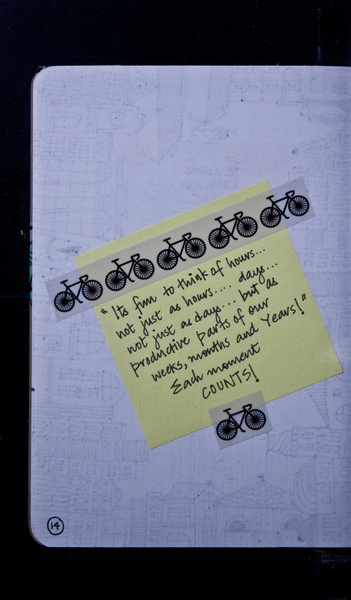 "Its fun to think of hours...
not just as hours.... days...
not just as days... but as
productive parts of our
weeks, months and Years!"
Each moment
COUNTS!
14